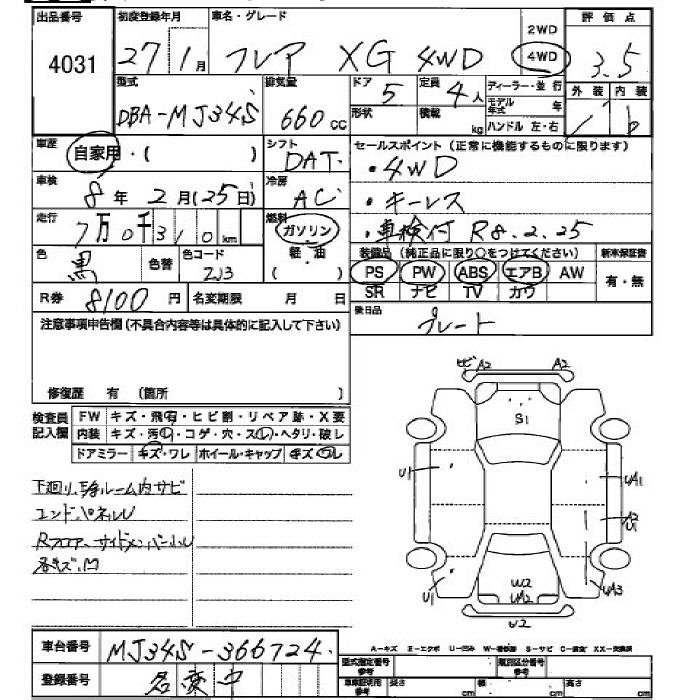 出品番号 初度登録年月 車名・グレード 2WD 評価点
4031 27 1月 フレア XG 4WD 4WD 3.5
型式 排気量 ドア 定員 ディーラー・並行 外装 内装
DBA-MJ34S 660cc 5 4人 モデル年式 年
形状 積載 kg ハンドル 左・右 b
車歴 自家用・( ) シフト DAT セールスポイント(正常に機能するものに限ります)
・4WD
車検 8年2月(25日) 冷房 AC ・キーレス
走行 7万0千310km 燃料 ガソリン ・車検付 R8.2.25
軽油 装備品(純正品に限り○をつけてください) 新車保証書
色 黒 色替 色コード ZJ3 PS PW ABS エアB AW 有・無
SR ナビ TV カワ
R券 8100円 名変期限 月 日 後日品 プレート
注意事項申告欄(不具合内容等は具体的に記入して下さい)
修復歴 有 (箇所 )
検査員記入欄 FW キズ・飛石・ヒビ割・リペア跡・X要
内装 キズ・汚れ・コゲ・穴・スレ・ヘタリ・破レ
ドアミラー キズ・ワレ ホイール・キャップ キズ・ワレ
下廻り、Eルーム内サビ
エンドパネルU
Rフロア、サイドメンバー小U
各キズ、凹
ビ A2 A2
S1
U1 UA1
A2
U1
W2
UA2
U1 UA3
U2
車台番号 MJ34S-366724
登録番号 名変中
A-キズ E-エクボ U-凹み W-補修跡 S-サビ C-腐食 XX-交換済
型式指定番号 参考 類別区分番号 参考
車庫証明用 参考 長さ cm 幅 cm 高さ cm